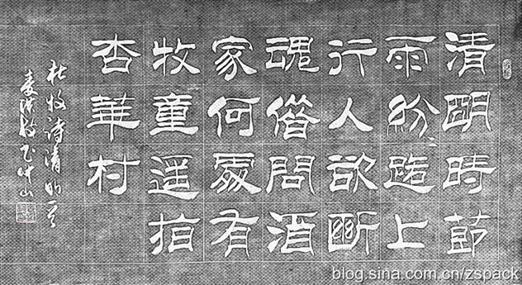 清明時節
雨紛〻路上
行人欲斷
魂借問酒
家何處有
牧童遥指
杏華村
杜牧诗清明
blog.sina.com.cn/zspack